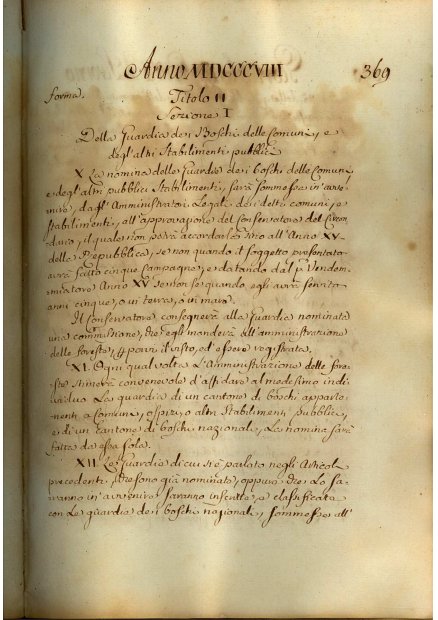 Anno MDCCCVIII 369
forma. Titolo II
Sezione I
Della Guardia dei Boschi delle Comuni, e
degl'altri Stabilimenti pubblici
X. La nomina delle Guardie dei boschi delle Comuni
e degl'altri pubblici Stabilimenti, sarà sommessa in avve-
nire, dagl'Amministratori Legali dei detti comuni, e
stabilimenti, all'approvazione del Conservatore del Circon-
dario, il quale non potrà accordarla sino all'Anno XV
della Repubblica, se non quando il soggetto presentato
avrà fatto cinque campagne, e datando dal p.º Vendem-
miatore Anno XV se non se quando egli avrà servito
anni cinque, o in terra, o in mare.
Il Conservatore, consegnerà alla Guardia nominata
una commissione, che egli manderà all'amministrazione
delle foreste, p. porvi il visto, ed essere registrata.
XI. Ogni qual volta L'Amministrazione delle fore-
ste stimerà convenevole d'affidare al medesimo indi-
viduo La guardia di un cantone di boschi apparte-
nenti a Comuni, ospizi, o altri Stabilimenti pubblici,
e di un cantone di boschi nazionali, La nomina sarà
fatta da essa sola.
XII. Le Guardie di cui si è parlato negli Articoli
precedenti, che sono già nominate, oppure che lo sa-
ranno in avvenire, saranno inscritte, e classificate
con Le guardie dei boschi nazionali, sommesse all'